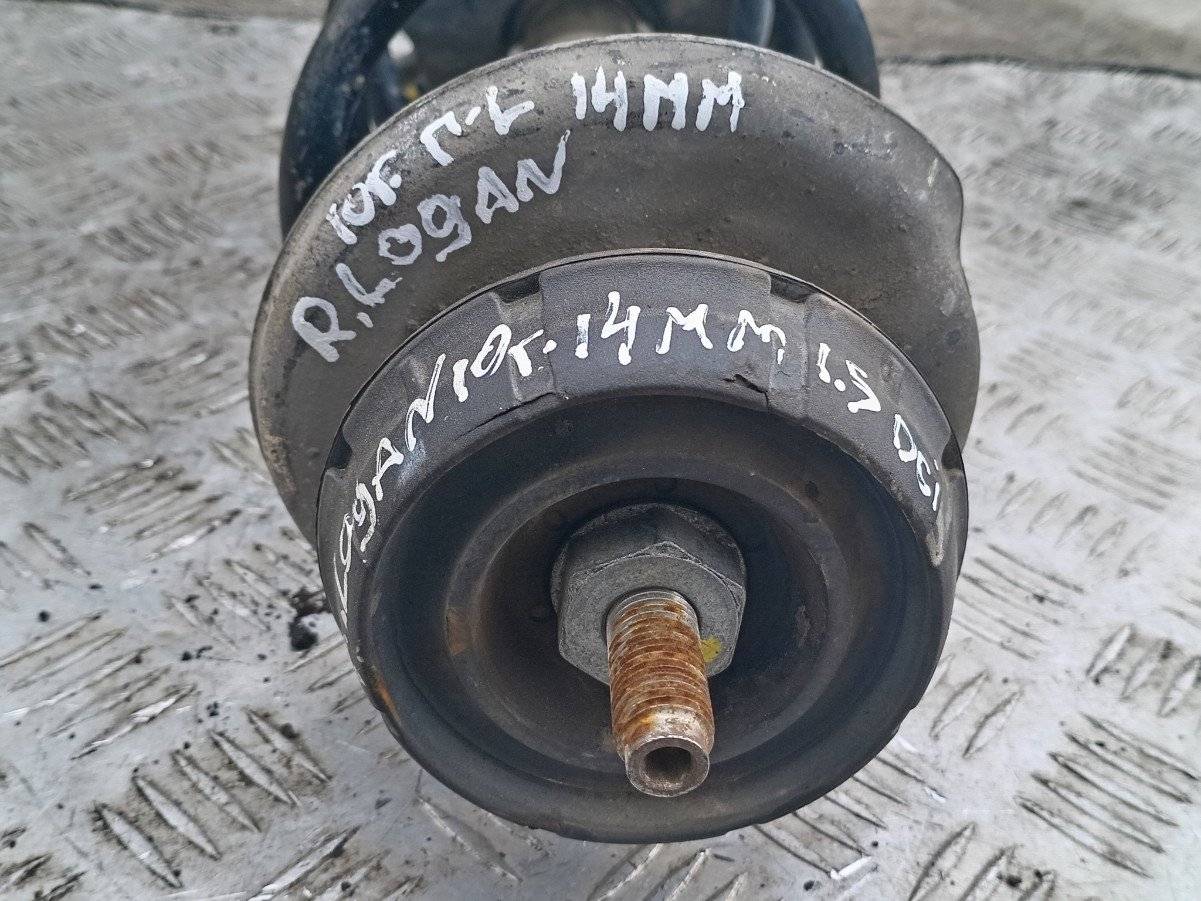 10г. Г-L 14MM
R. LogAN
LogAN 10г. 14MM 1.5 Dci